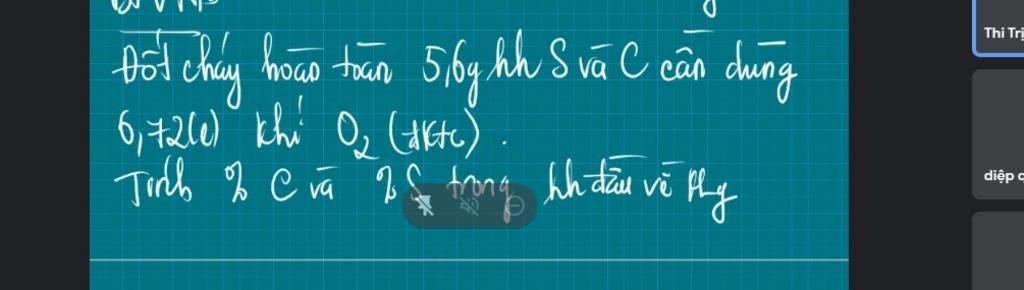 Đốt cháy hoàn toàn 5,6g hh S và C cần dùng
6,72(l) khí O2 (đktc).
Tính % C và % S trong hh đầu về Phg
Thi Trị
diệp q